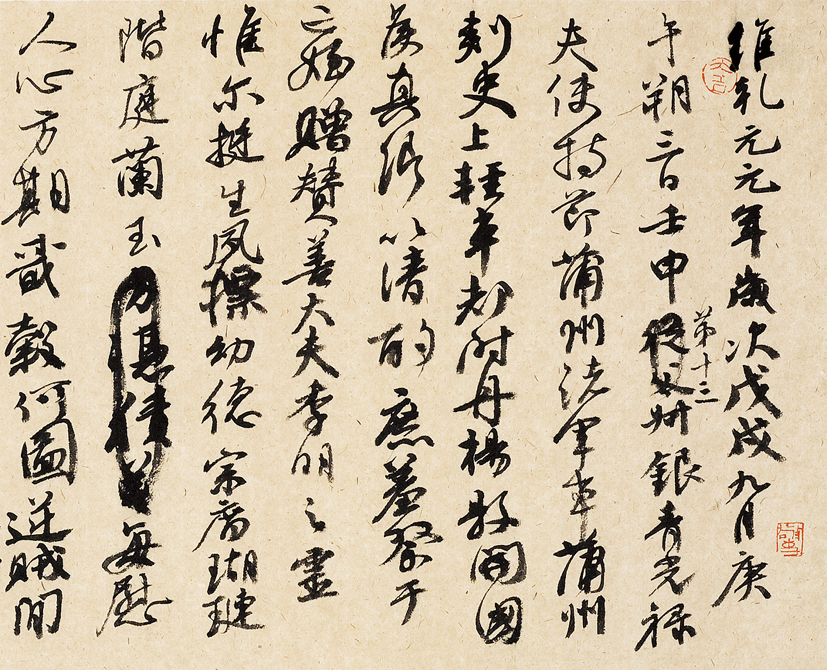 維乾元元年歲次戊戌九月庚
午朔三日壬申第十三叔銀青光祿
夫使持節蒲州諸軍事蒲州
刺史上輕車都尉丹楊縣開國
侯真卿以清酌庶羞祭于
亡姪贈贊善大夫季明之靈
惟尔挺生夙標幼德宗廟瑚璉
階庭蘭玉每慰
人心方期戩穀何圖逆賊閒